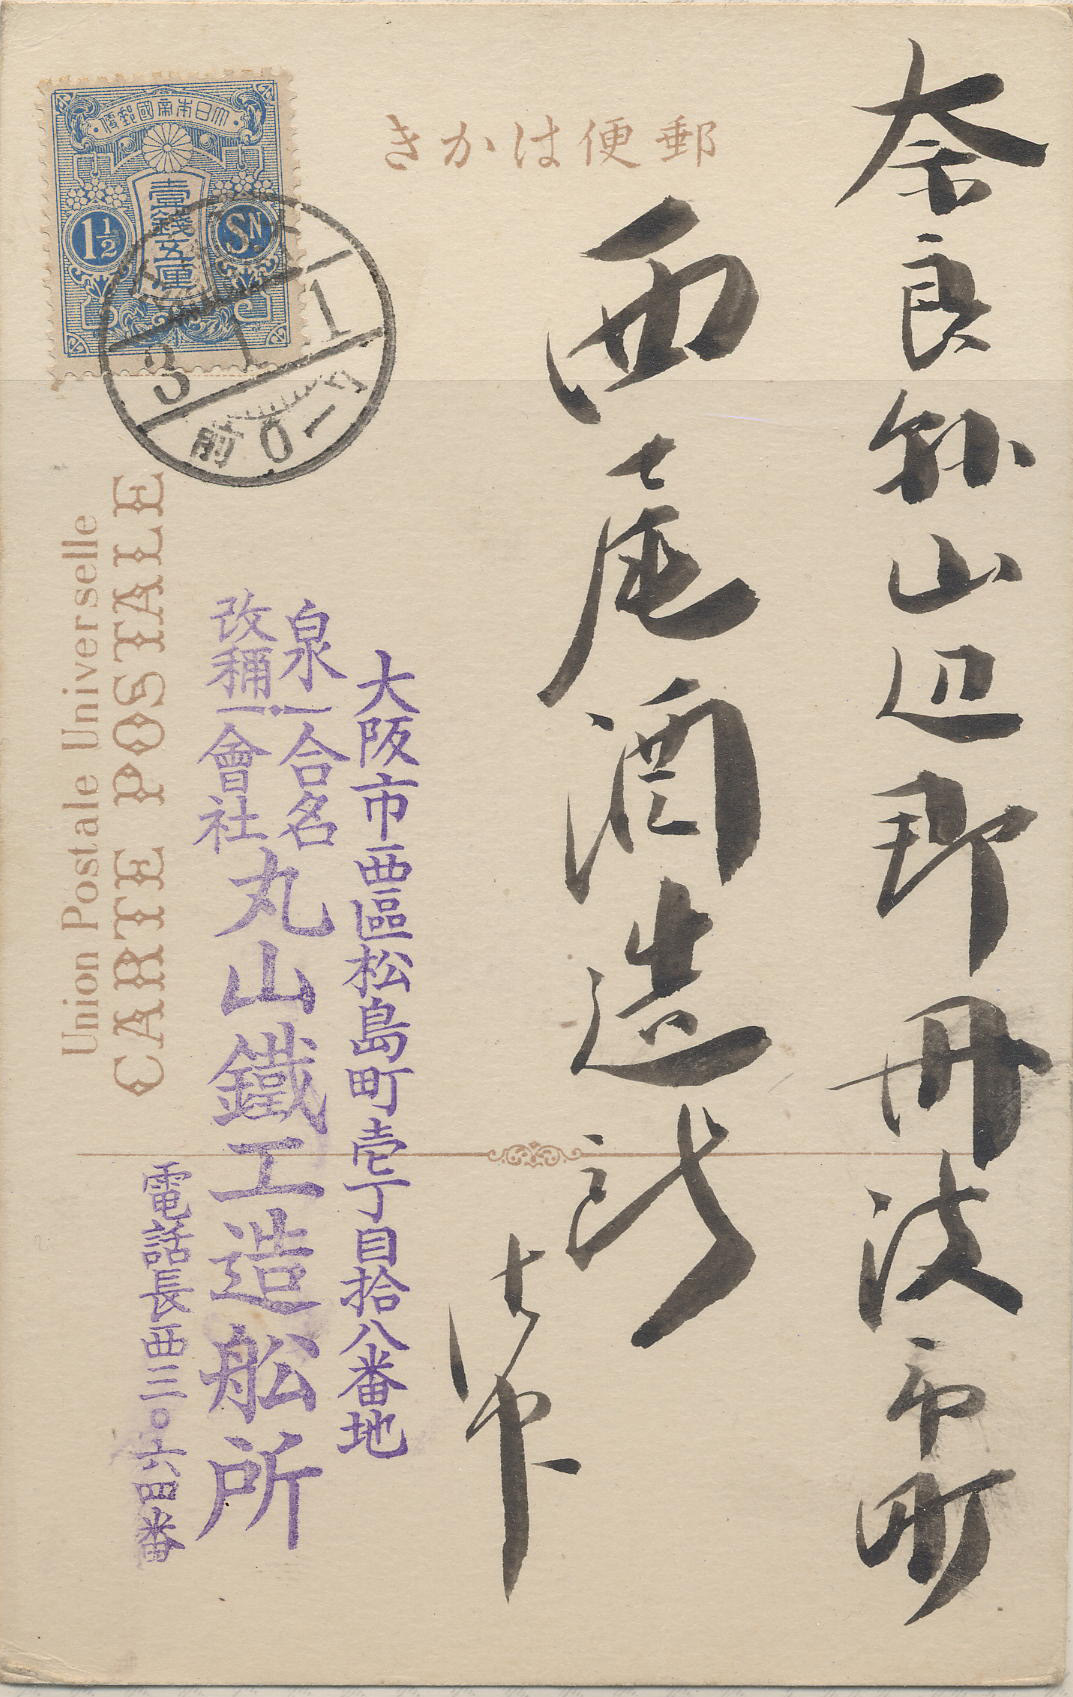 郵便はかき
大日本帝國郵便
壹錢五厘
1½
SN
3.1.1
前0-7
Union Postale Universelle
CARTE POSTALE
奈良縣山辺郡丹波市町
西尾酒造
御中
大阪市西區松島町壱丁目拾八番地
泉改稱
合名會社
丸山鐵工造舩所
電話長西三〇六四番